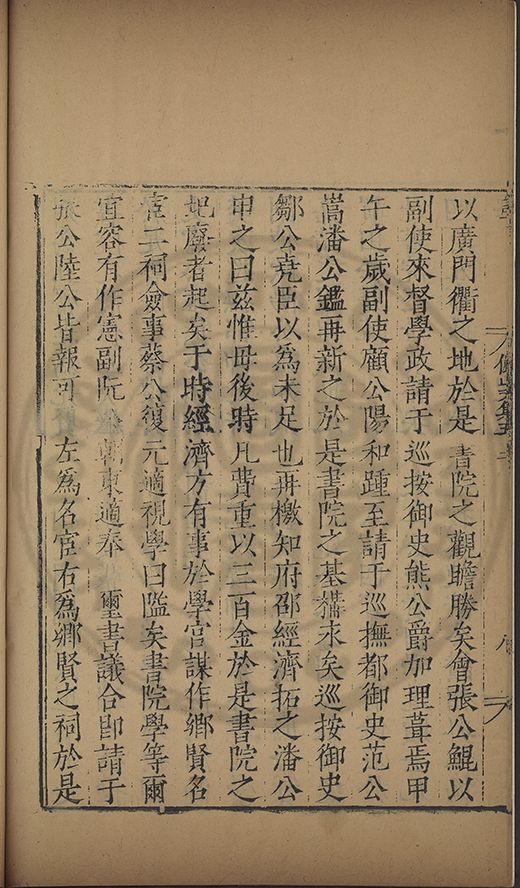 以廣門衢之地於是 書院之觀瞻勝矣會張公鯤以
副使來督學政請于巡按御史熊公爵加理葺焉甲
午之歲副使顧公陽和踵至請于巡撫都御史范公
嵩潘公鑑再新之於是書院之基搆永矣巡按御史
鄒公堯臣以為未足也再檄知府邵經濟拓之潘公
申之曰茲惟毋後時凡費重以三百金於是書院之
圯廢者起矣于時經濟方有事於學官謀作鄉賢名
宦二祠僉事蔡公復元適視學曰隘矣書院學等爾
宜容有作憲副阮公朝東適奉 璽書議合卽請于
張公陸公皆報可 左為名宦右為鄉賢之祠於是